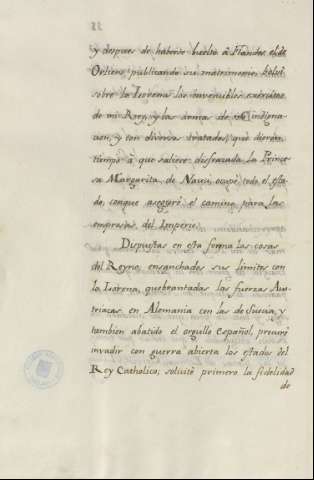 y despues de haberse buelto â Flandes el de
Orliens, publicando su matrimonio,
sobre la Lorena los invencibles exercitos
de mi Rey, y las armas de su indigna-
cion, y con diversos tratados, que dieron
tiempo â que saliese disfrazada la Prince-
sa Margarita, de Nanci, ocupé todo el esta-
do, conque aseguré el camino para las
empresas del Imperio.
Dispuestas en esta forma las cosas
del Reyno, ensanchados sus limites con
la Lorena, quebrantadas las fuerzas Aus-
triacas en Alemania con las de Suecia, y
tambien abatido el orgullo Español, procuré
invadir con guerra abierta los estados del
Rey Catholico; solicité primero la fidelidad
de